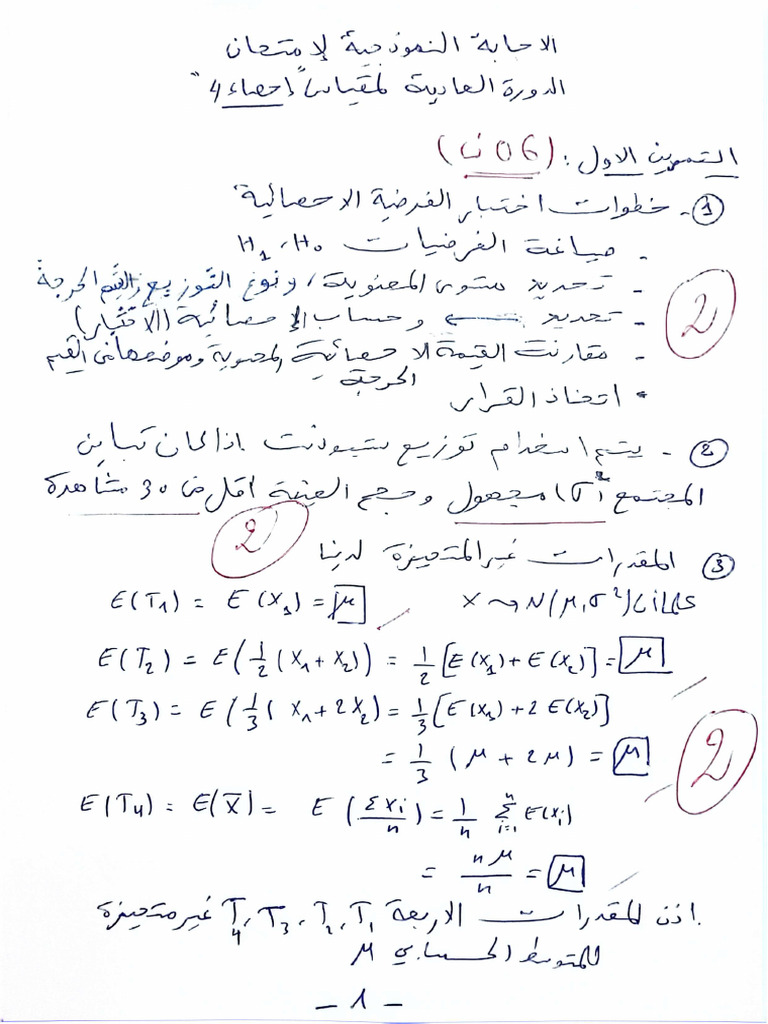 الاجابة النموذجية لإمتحان
الدورة العادية لمقياس "إحصاء 4"
التمرين الاول: (06 ن)
① - خطوات اختبار الفرضية الاحصائية
- صياغة الفرضيات H0، H1
- تحديد مستوى المعنوية، ونوع التوزيع والقيم الحرجة
- تحديد ← وحساب الإحصائية (الاختبار)
- مقارنت القيمة الاحصائية المحسوبة وموضعها في القيم
الحرجة
• اتخاذ القرار
2
② - يتم استخدام توزيع ستيودنت اذا كان تباين
المجتمع (σ²) مجهول وحجم العينة أقل من 30 مشاهدة
2
③ المقدرات غير المتحيزة لدينا
X ↝ N(μ, σ²) E(T1) = E(X1) = μ
E(T2) = E(1/2 (X1 + X2)) = 1/2 [E(X1) + E(X2)] = μ
E(T3) = E(1/3 (X1 + 2X2) = 1/3 [E(X1) + 2 E(X2)]
= 1/3 (μ + 2μ) = μ
2
E(T4) = E(X̄) = E(ΣXi/n) = 1/n Σ_{i=1}^{n} E(Xi)
= nμ/n = μ
اذن المقدرات الاربعة T1, T2, T3, T4 غير متحيزة
للمتوسط الحسابي μ
- 1 -